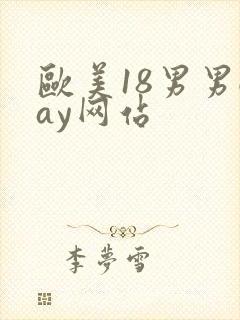 歐美18男男g
ay网佔
李夢雪